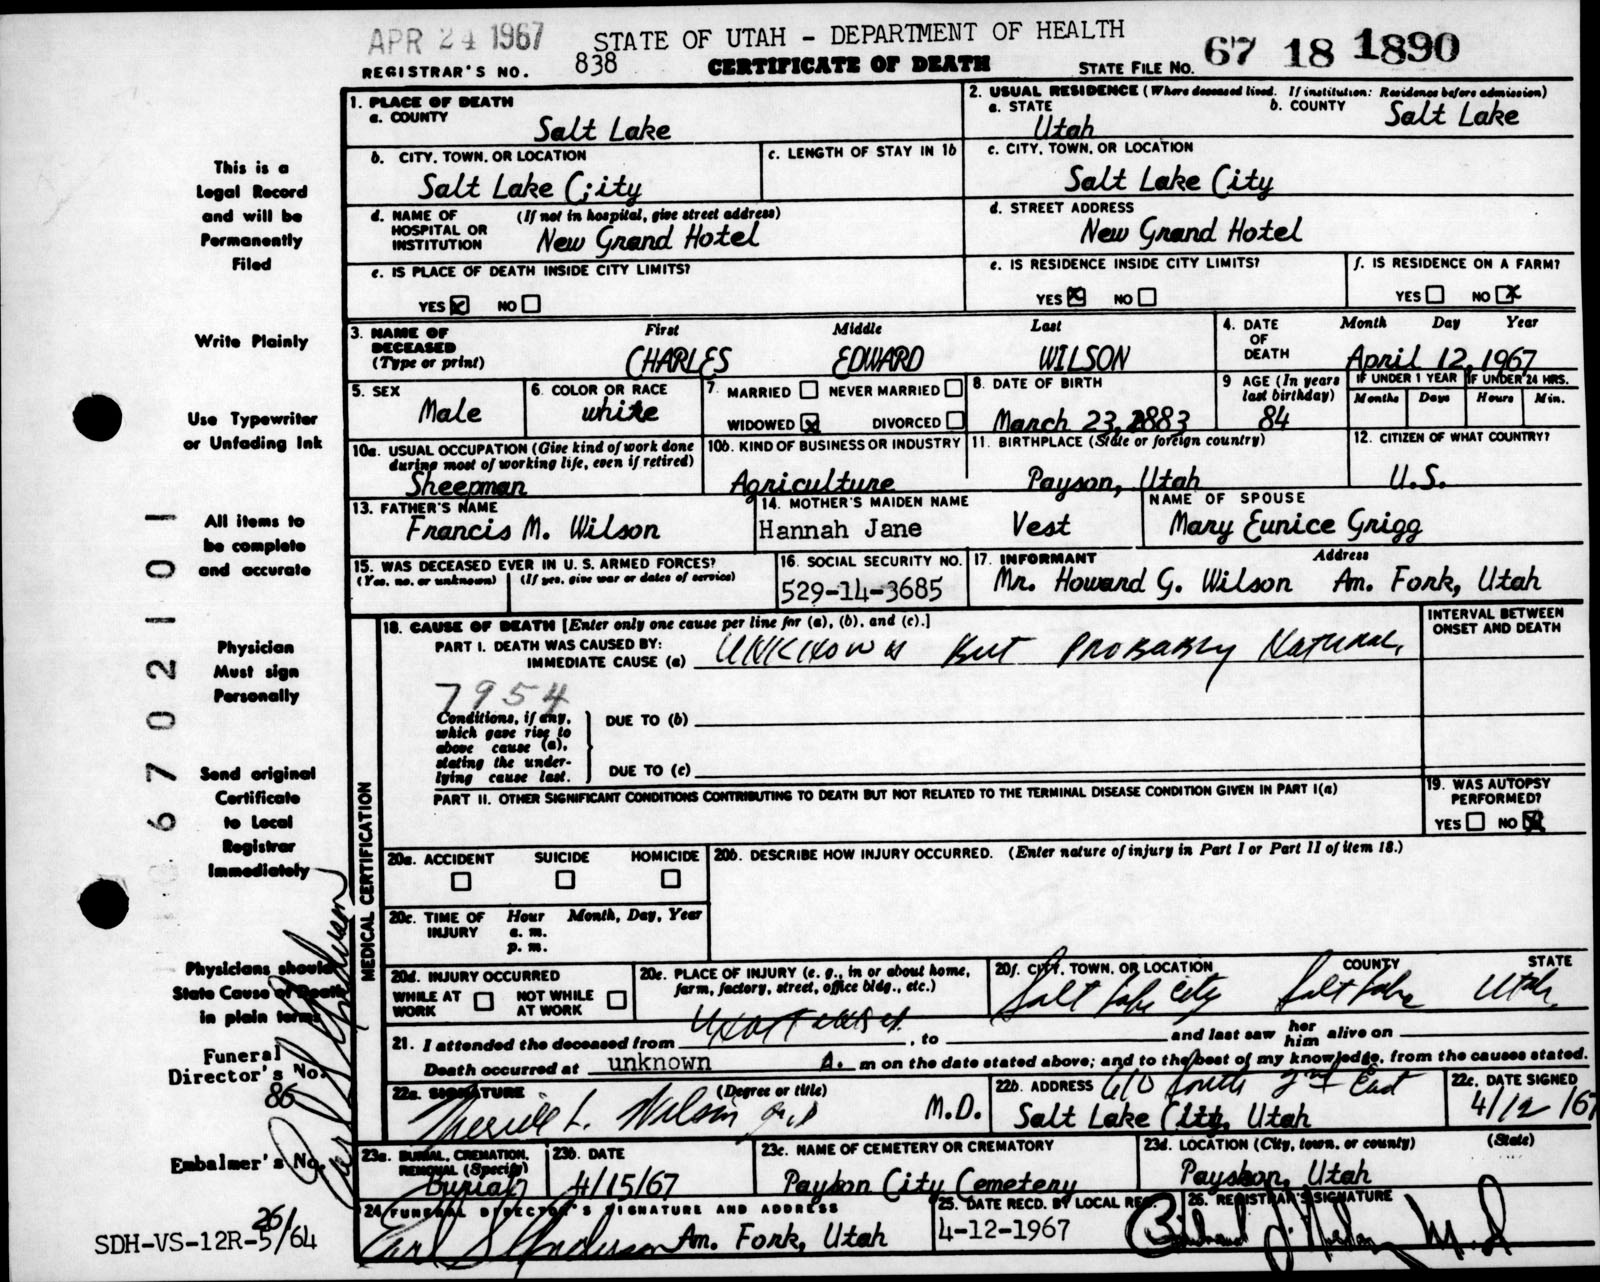 APR 24 1967
STATE OF UTAH - DEPARTMENT OF HEALTH
REGISTRAR'S NO. 838 CERTIFICATE OF DEATH STATE FILE NO. 67 18 1890
This is a
Legal Record
and will be
Permanently
Filed
Write Plainly
Use Typewriter
or Unfading Ink
All items to
be complete
and accurate
Physician
Must sign
Personally
Send original
Certificate
to Local
Registrar
Immediately
Physicians should
State Cause of Death
in plain terms
Funeral
Director's No.
86
Embalmer's No.
26/
SDH-VS-12R-5/64
6702101
1. PLACE OF DEATH
a. COUNTY
Salt Lake
2. USUAL RESIDENCE (Where deceased lived. If institution: Residence before admission)
a. STATE
Utah
b. COUNTY
Salt Lake
b. CITY, TOWN, OR LOCATION
Salt Lake C;ity
c. LENGTH OF STAY IN 1b
c. CITY, TOWN, OR LOCATION
Salt Lake City
d. NAME OF (If not in hospital, give street address)
HOSPITAL OR
INSTITUTION New Grand Hotel
d. STREET ADDRESS
New Grand Hotel
e. IS PLACE OF DEATH INSIDE CITY LIMITS?
YES ☒ NO ☐
e. IS RESIDENCE INSIDE CITY LIMITS?
YES ☒ NO ☐
f. IS RESIDENCE ON A FARM?
YES ☐ NO ☒
3. NAME OF First Middle Last
DECEASED
(Type or print) CHARLES EDWARD WILSON
4. DATE Month Day Year
OF
DEATH April 12, 1967
5. SEX
Male
6. COLOR OR RACE
white
7. MARRIED ☐ NEVER MARRIED ☐
WIDOWED ☒ DIVORCED ☐
8. DATE OF BIRTH
March 23, 1883
9 AGE (In years
last birthday)
84
IF UNDER 1 YEAR IF UNDER 24 HRS.
Months Days Hours Min.
10a. USUAL OCCUPATION (Give kind of work done
during most of working life, even if retired)
Sheepman
10b. KIND OF BUSINESS OR INDUSTRY
Agriculture
11. BIRTHPLACE (State or foreign country)
Payson, Utah
12. CITIZEN OF WHAT COUNTRY?
U.S.
13. FATHER'S NAME
Francis M. Wilson
14. MOTHER'S MAIDEN NAME
Hannah Jane Vest
NAME OF SPOUSE
Mary Eunice Grigg
15. WAS DECEASED EVER IN U. S. ARMED FORCES?
(Yes, no, or unknown) (If yes, give war or dates of service)
16. SOCIAL SECURITY NO.
529-14-3685
17. INFORMANT Address
Mr. Howard G. Wilson Am. Fork, Utah
MEDICAL CERTIFICATION
18. CAUSE OF DEATH [Enter only one cause per line for (a), (b), and (c).]
INTERVAL BETWEEN
ONSET AND DEATH
PART I. DEATH WAS CAUSED BY:
IMMEDIATE CAUSE (a) UNKNOWN BUT PROBABLY NATURAL.
7954
Conditions, if any,
which gave rise to
above cause (a),
stating the under-
lying cause last.
DUE TO (b)
DUE TO (c)
PART II. OTHER SIGNIFICANT CONDITIONS CONTRIBUTING TO DEATH BUT NOT RELATED TO THE TERMINAL DISEASE CONDITION GIVEN IN PART I(a)
19. WAS AUTOPSY
PERFORMED?
YES ☐ NO ☒
20a. ACCIDENT SUICIDE HOMICIDE
☐ ☐ ☐
20b. DESCRIBE HOW INJURY OCCURRED. (Enter nature of injury in Part I or Part II of item 18.)
20c. TIME OF Hour Month, Day, Year
INJURY a. m.
p. m.
20d. INJURY OCCURRED
WHILE AT WORK ☐ NOT WHILE AT WORK ☐
20e. PLACE OF INJURY (e. g., in or about home,
farm, factory, street, office bldg., etc.)
20f. CITY, TOWN, OR LOCATION COUNTY STATE
Salt Lake City Salt Lake Utah
21. I attended the deceased from , to and last saw her him alive on
Death occurred at unknown A. m on the date stated above; and to the best of my knowledge, from the causes stated.
22a. SIGNATURE (Degree or title)
Merrill L. Wilson M.D. M.D.
22b. ADDRESS 610 South 2nd East
Salt Lake City, Utah
22c. DATE SIGNED
4/12/67
23a. BURIAL, CREMATION,
REMOVAL (Specify)
Burial
23b. DATE
4/15/67
23c. NAME OF CEMETERY OR CREMATORY
Payson City Cemetery
23d. LOCATION (City, town, or county) (State)
Payson, Utah
24 FUNERAL DIRECTOR'S SIGNATURE AND ADDRESS
Earl S Anderson Am. Fork, Utah
25. DATE RECD. BY LOCAL REG.
4-12-1967
26. REGISTRAR'S SIGNATURE